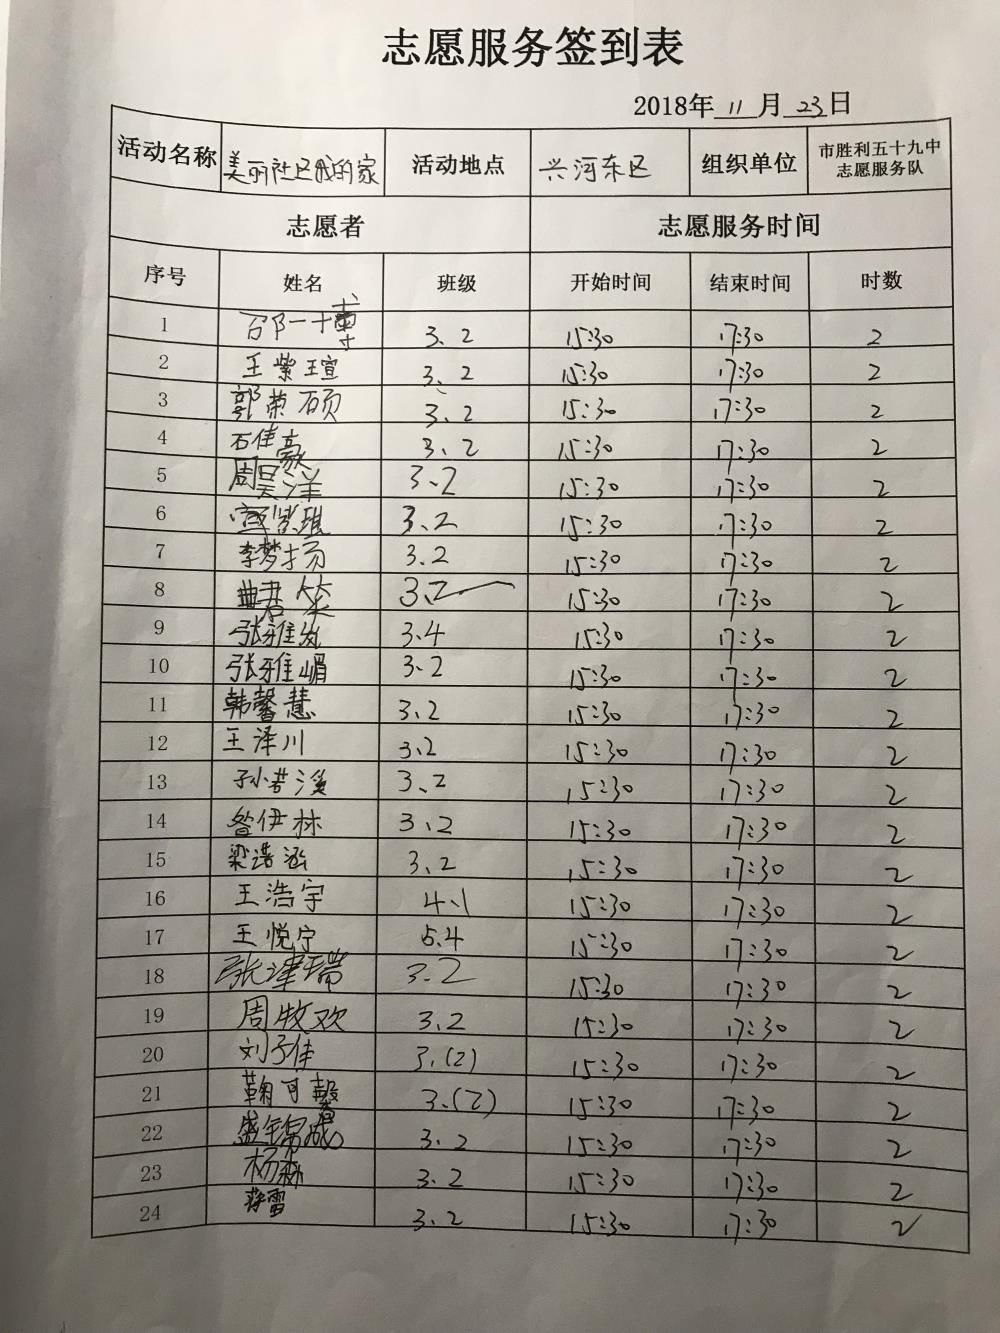 志愿服务签到表
2018年 11 月 23 日
活动名称 美丽社区我的家 活动地点 兴河东区 组织单位 市胜利五十九中志愿服务队
志愿者 志愿服务时间
序号 姓名 班级 开始时间 结束时间 时数
1 邵一十博 3、2 15:30 17:30 2
2 王紫瑄 3、2 15:30 17:30 2
3 郭荣硕 3、2 15:30 17:30 2
4 石佳豪 3、2 15:30 17:30 2
5 周昊洋 3、2 15:30 17:30 2
6 3、2 15:30 17:30 2
7 李梦扬 3、2 15:30 17:30 2
8 曲君 3、2 15:30 17:30 2
9 张雅岚 3、4 15:30 17:30 2
10 张雅嵋 3、2 15:30 17:30 2
11 韩馨慧 3、2 15:30 17:30 2
12 王泽川 3、2 15:30 17:30 2
13 孙若溪 3、2 15:30 17:30 2
14 昝伊林 3、2 15:30 17:30 2
15 梁浩泓 3、2 15:30 17:30 2
16 王浩宇 4、1 15:30 17:30 2
17 王悦宁 5.4 15:30 17:30 2
18 张津瑞 3、2 15:30 17:30 2
19 周牧欢 3、2 15:30 17:30 2
20 刘子佳 3、(2) 15:30 17:30 2
21 鞠可馨 3、(2) 15:30 17:30 2
22 盛锦成 3、2 15:30 17:30 2
23 杨森 3、2 15:30 17:30 2
24 蒋雷 3、2 15:30 17:30 2